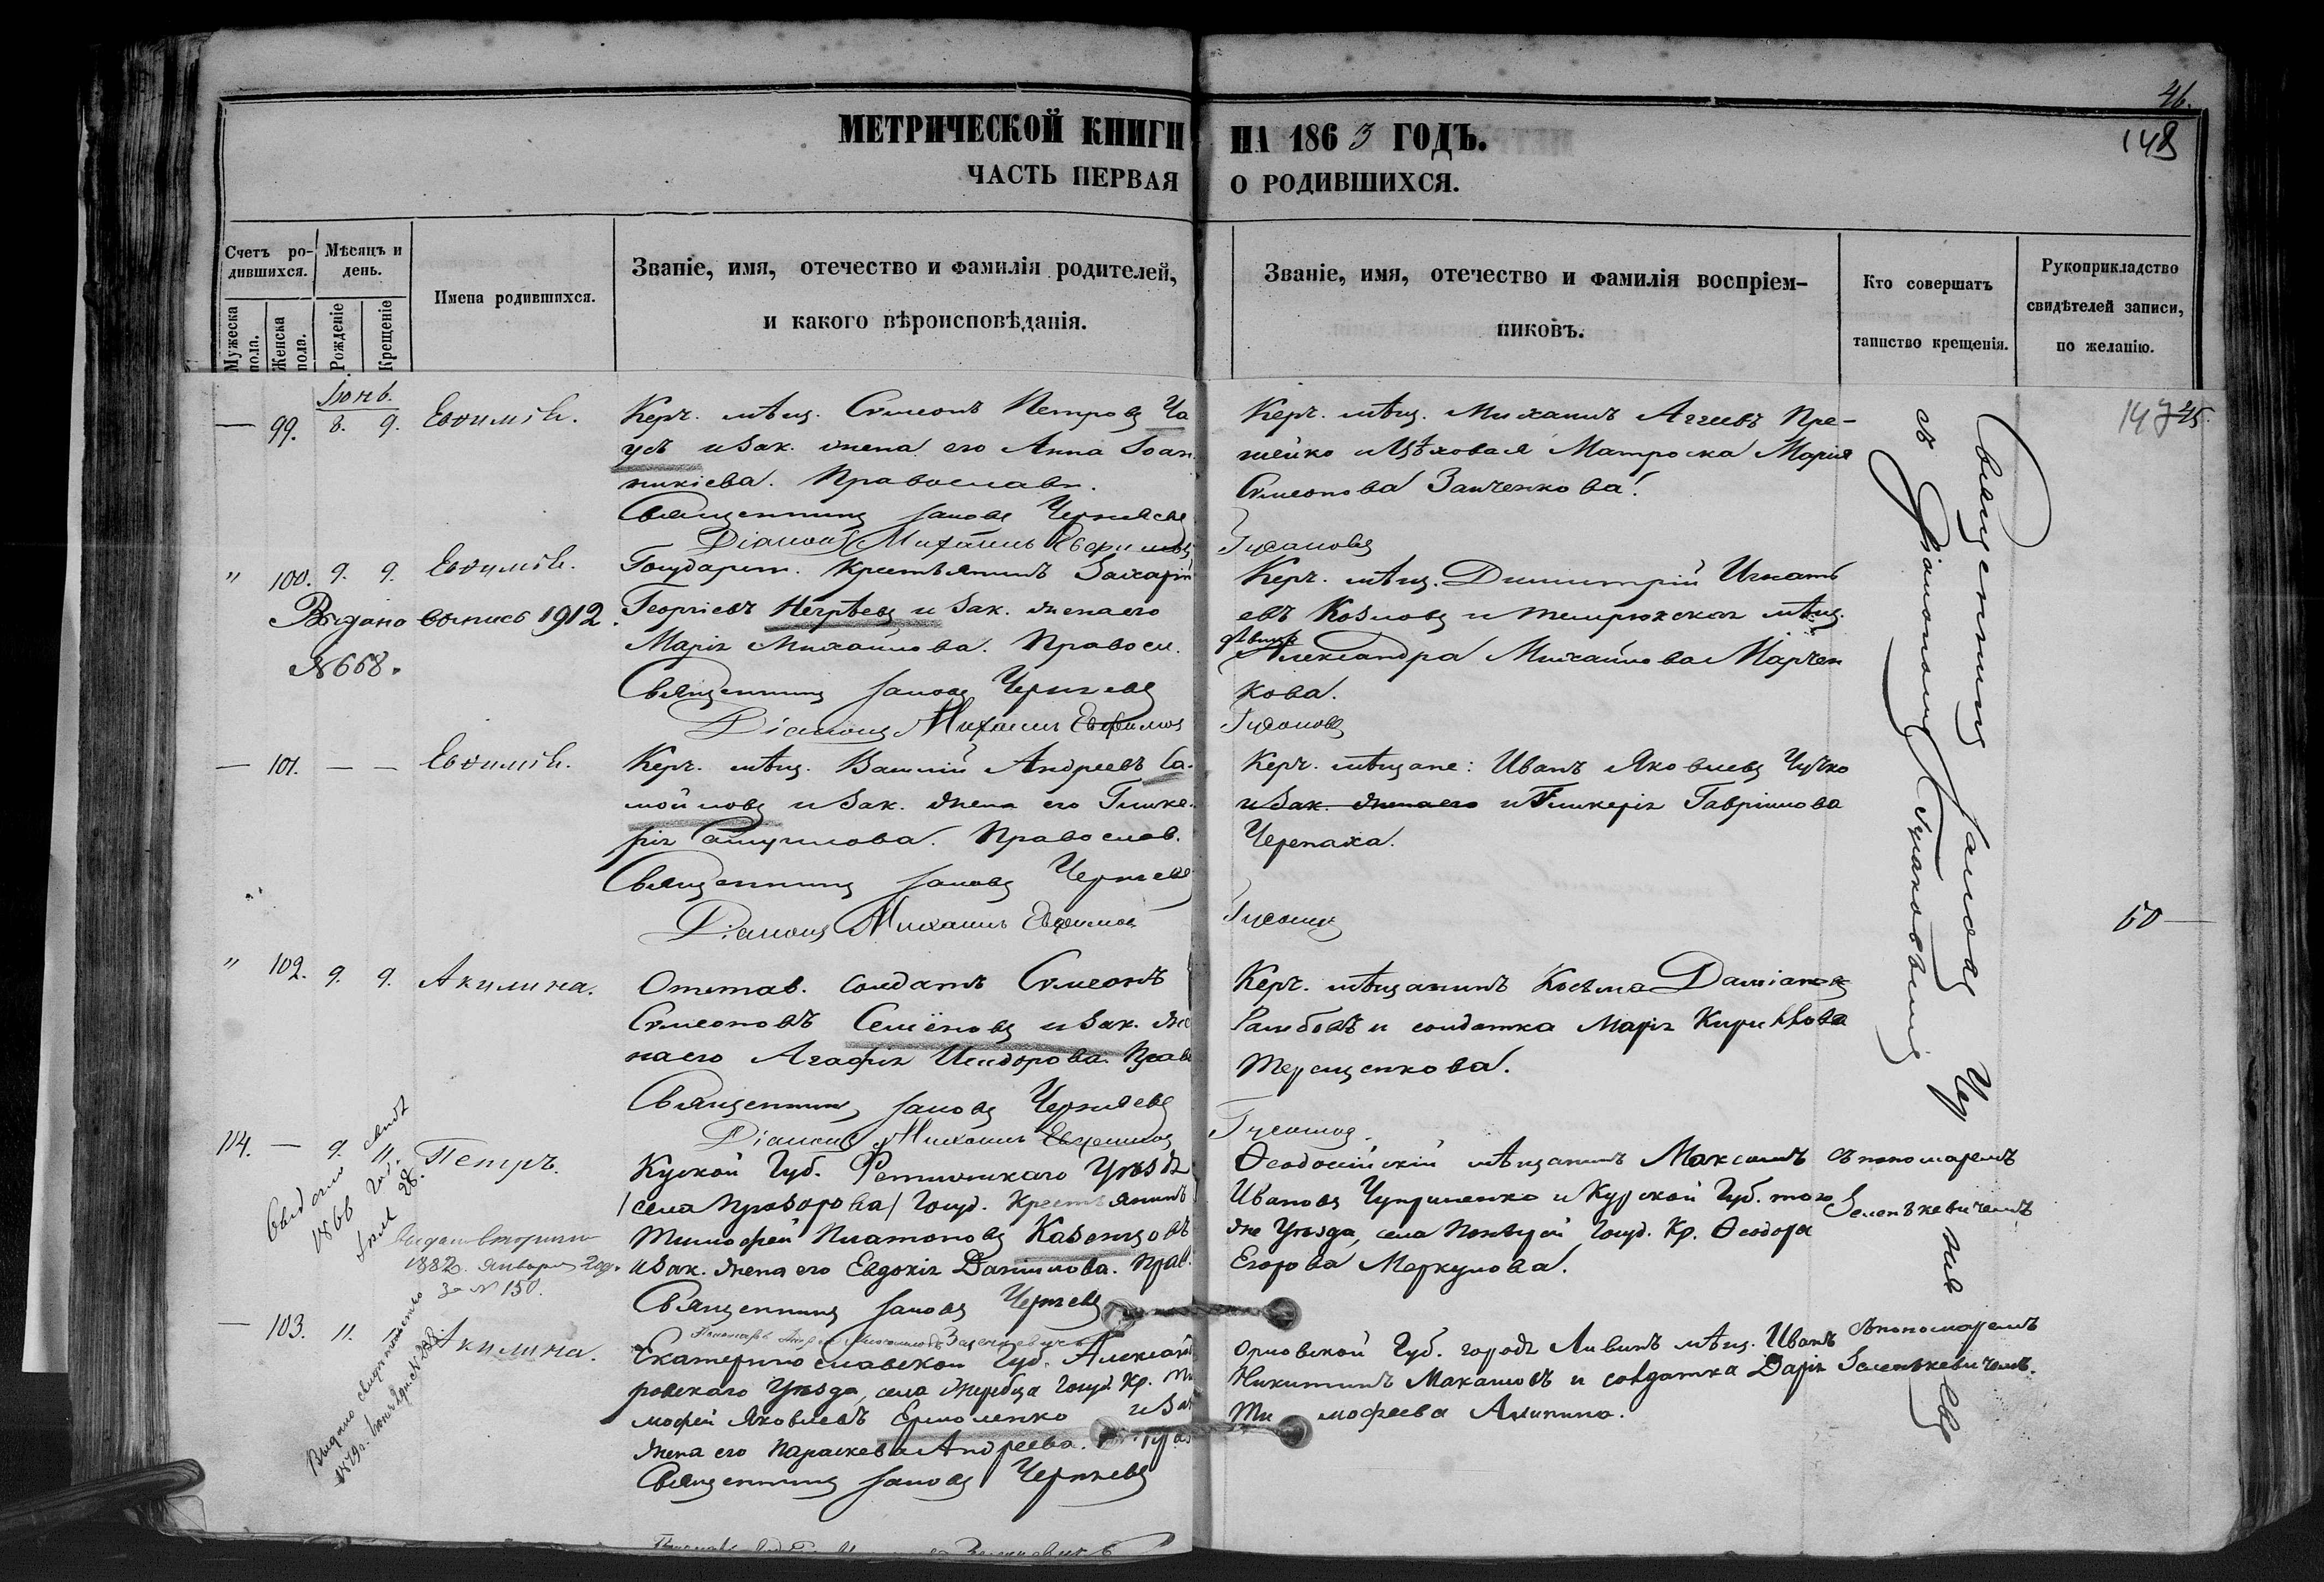 46.
148
МЕТРИЧЕСКОЙ КНИГИ НА 1863 ГОДЪ.
ЧАСТЬ ПЕРВАЯ О РОДИВШИХСЯ.
Счетъ ро-
дившихся.
Мужеска пола.
Женска пола.
Мѣсяцъ и
день.
Рожденіе
Крещеніе
Имена родившихся.
Званіе, имя, отечество и фамилія родителей,
и какого вѣроисповѣданія.
Званіе, имя, отечество и фамилія воспріем-
никовъ.
Кто совершатъ
таинство крещенія.
Рукоприкладство
свидѣтелей записи,
по желанію.
Іюнь.
— 99. 8. 9. Евѳимія.
Керч. мѣщ. Симеонъ Петровъ Ча
усъ и зак. жена его Анна Іоан
никіева. Православн.
Священникъ Іаковъ Черняевъ
Діаконъ Михаилъ Евфимовъ
Керч. мѣщ. Михаилъ Аггеевъ Пре-
шейко и Цѣховая Матроска Марія
Симеонова Заиченкова.
Гусаковъ
147
" 100. 9. 9. Евѳимія.
Выдана выпись 1912.
№ 668.
Государст. крестьянинъ Захарій
Георгіевъ Негрѣевъ и зак. жена его
Марія Михайлова. Правосл.
Священникъ Іаковъ Черняевъ
Діаконъ Михаилъ Евфимовъ
Керч. мѣщ. Димитрій Игнать
евъ Козловъ и темрюкская мѣщ.
дѣвица
Александра Михайлова Марчен
кова.
Гусаковъ
— 101. — — Евѳимія.
Керч. мѣщ. Василій Андреевъ Са-
мойловъ и зак. жена его Глике-
рія Самуилова. Православ.
Священникъ Іаковъ Черняевъ
Діаконъ Михаилъ Евфимовъ
Керч. мѣщане: Иванъ Яковлевъ Чучко
и зак. жена его и Гликерія Гавріилова
Черепаха.
Гусаковъ
50 —
" 102. 9. 9. Акилина.
Отстав. солдатъ Симеонъ
Симеоновъ Семёновъ и зак. же
на его Агафія Исидорова. Прав
Священникъ Іаковъ Черняевъ
Діаконъ Михаилъ Евфимовъ
Керч. мѣщанинъ Косьма Даміановъ
и солдатка Марія Кириллова
Терещенкова.
Гусаковъ
114. — 9. 11. Петръ.
1866 года
28.
1882 января 20 г.
За № 150.
Курской Губ. Уѣзда
(села Прозорова) Госуд. Крестьянинъ
Тимофей Платоновъ Казенцовъ
и зак. жена его Евдокія Даніилова. Прав.
Священникъ Іаковъ Черняевъ
Ѳеодосійскій мѣщанинъ Максимъ
Ивановъ Чуприненко и Курской Губ. того
же Уѣзда, села Госуд. Кр. Ѳеодора
Егорова Меркулова.
съ пономаремъ
Зеленкевичемъ
— 103. 11. Акилина.
Выдано свидетельство
1879 г.
Екатеринославской Губ. Александ
ровскаго Уѣзда, села Жеребца Госуд. Кр. Ти
мофей Яковлевъ Ермоленко и зак
жена его Параскева Андреева. Прав
Священникъ Іаковъ Черняевъ
Орловской Губ. города Ливинъ мѣщ. Иванъ
Никитинъ Макашовъ и солдатка Дарія
Тимофеева Аликина.
съ пономаремъ
Зеленкевичемъ.
Священникъ Іаковъ Черняевъ
съ Діакономъ Гусаковымъ